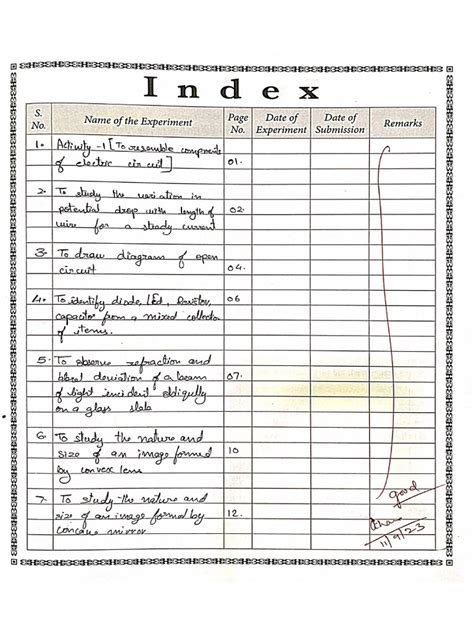 Index
S. No. Name of the Experiment Page No. Date of Experiment Date of Submission Remarks
1. Activity -1 [To resemble components
of electric circuit] 01.
2. To study the variation in
potential drop with length of 02.
wire for a steady current
3. To draw diagram of open
circuit 04.
4. To identify diode, LEd, Resistor, 06
capacitor from a mixed collection
of items.
5. To observe refraction and
lateral deviation of a beam 07.
of light incident obliqully
on a glass slab
6. To study the nature and
size of an image formed 10
by convex lens
7. To study the nature and
size of an image formed by 12.
concave mirror
good
11/9/23